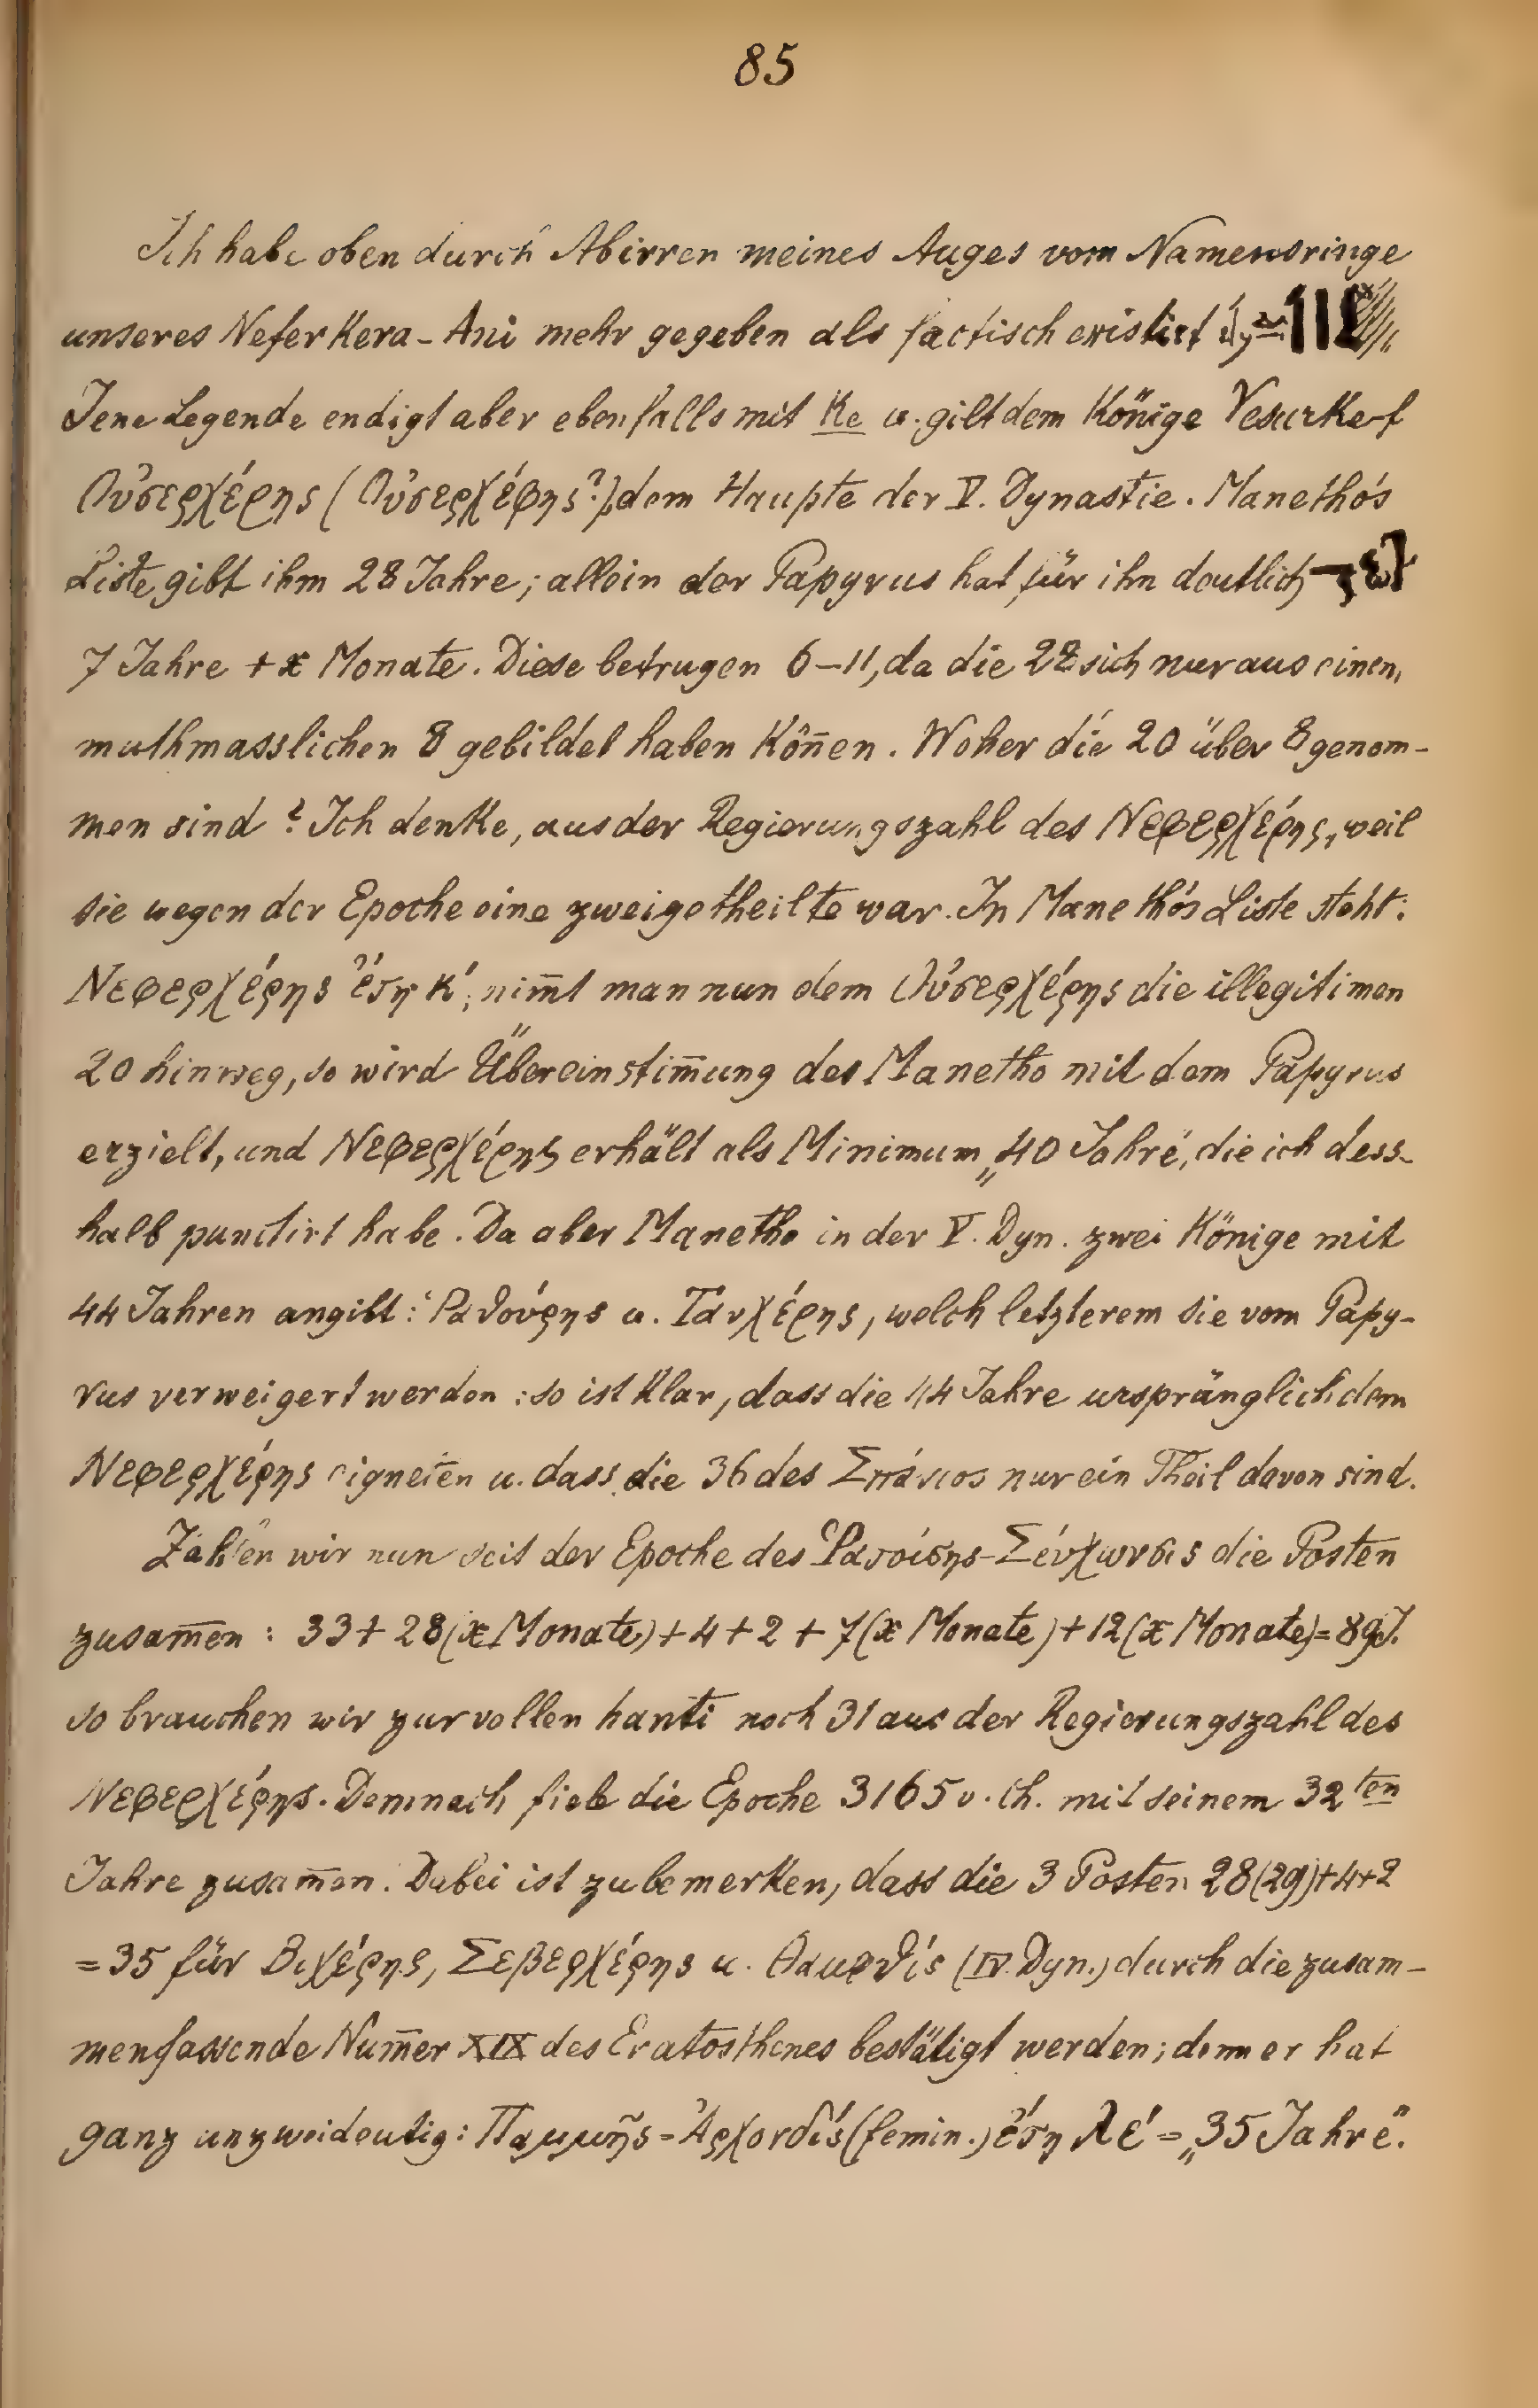 85
Ich habe oben durch Abirren meines Auges vom Namensringe
unseres NeferKera-Ani mehr gegeben als factisch existirt
Jene Legende endigt aber ebenfalls mit Ke u. gilt dem Könige Vesurkef
Οὐσερχέρης (Οὐσερχέφης?) dem Haupte der V. Dynastie. Manetho's
Liste gibt ihm 28 Jahre; allein der Papyrus hat für ihn deutlich
7 Jahre + x Monate. Diese betrugen 6–11, da die 28 sich nur aus einen,
muthmasslichen 8 gebildet haben kön̄en. Woher die 20 über 8 genom-
men sind? Ich denke, aus der Regierungszahl des Νεφερχέρης, weil
sie wegen der Epoche eine zweigetheilte war. In Manetho's Liste steht:
Νεφερχέρης ἔτη κ´; nim̄t man nun dem Οὐσερχέρης die illegitimen
20 hinweg, so wird Übereinstim̄ung des Manetho mit dem Papyrus
erzielt, und Νεφερχέρης erhält als Minimum „40 Jahre“, die ich dess-
halb punctirt habe. Da aber Manetho in der V. Dyn. zwei Könige mit
44 Jahren angibt: Ῥαθούρης u. Τανχέρης, welch letzterem sie vom Papy-
rus verweigert werden: so ist klar, dass die 44 Jahre ursprünglich dem
Νεφερχέρης eigneten u. dass die 36 des Σπάνιος nur ein Theil davon sind.
Zählen wir nun seit der Epoche des Ῥατοίσης-Σένχωνσις die Posten
zusam̄en: 33 + 28 (x Monate) + 4 + 2 + 7 (x Monate) + 12 (x Monate) = 89 J.
so brauchen wir zur vollen hanti noch 31 aus der Regierungszahl des
Νεφερχέρης. Demnach fiele die Epoche 3165 v. Ch. mit seinem 32ten
Jahre zusam̄en. Dabei ist zu bemerken, dass die 3 Posten 28 (29) + 4 + 2
= 35 für Βιχέρης, Σεβερχέρης u. Θαμφθίς (IV. Dyn.) durch die zusam-
menfassende Num̄er XIX des Eratosthenes bestätigt werden; denn er hat
ganz unzweideutig: Παμμῆς = Ἀρχονδίς (femin.) ἔτη λε´ = „35 Jahre“.